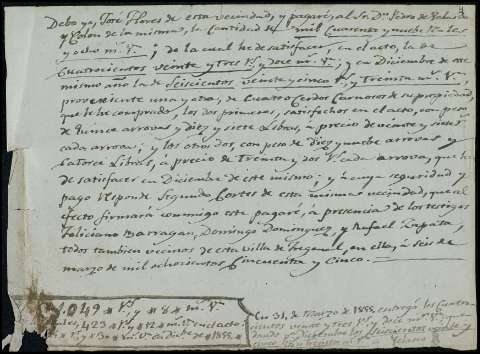 Debo yo, José Flores de esta vecindad, y pagaré, al Sr. Dn. Pedro de
y Colon de la misma, la Cantidad de mil Cuarenta y nueve rs. vs.
y ocho ms. vn.; de la cual he de satisfacer, en el acto, la de
Cuatrocientos veinte y tres rs. y doce ms. vn.; y en Diciembre de este
mismo año la de Seiscientos veinte y cinco rs. y treinta ms. vn.,
proveniente una y otra, de Cuatro Cerdos Carnosos de su propiedad,
que le he comprado; los dos primeros, satisfechos en el acto, con peso
de Quince arrovas y diez y siete Libras, á precio de veinte y siete rs.
cada arrova; y los otros dos, con peso de diez y nueve arrovas y
Catorce Libras, á precio de Treinta y dos rs. cada arrova, que he
de satisfacer en Diciembre de este mismo; y á cuya seguridad y
pago responde Segundo Cortes de esta misma vecindad, que al
efecto firmará conmigo este pagaré, á presencia de los testigos
Feliciano Barragan, Domingo Dominguez, y Rafael Zapata,
todos tambien vecinos de esta villa de Fregenal, en ella, á seis de
marzo de mil ochocientos Cincuenta y Cinco.
1.049 rs. y 8 ms. vn.
423 rs. y 12 ms. vn. en el acto
rs. y 30 ms. vn. en Dicbe. de 1855
En 31, de Marzo de 1855, entregó los Cuatro
cientos veinte y tres rs. y doce ms. vn. que
Diciembre los Seiscientos veinte y
cinco